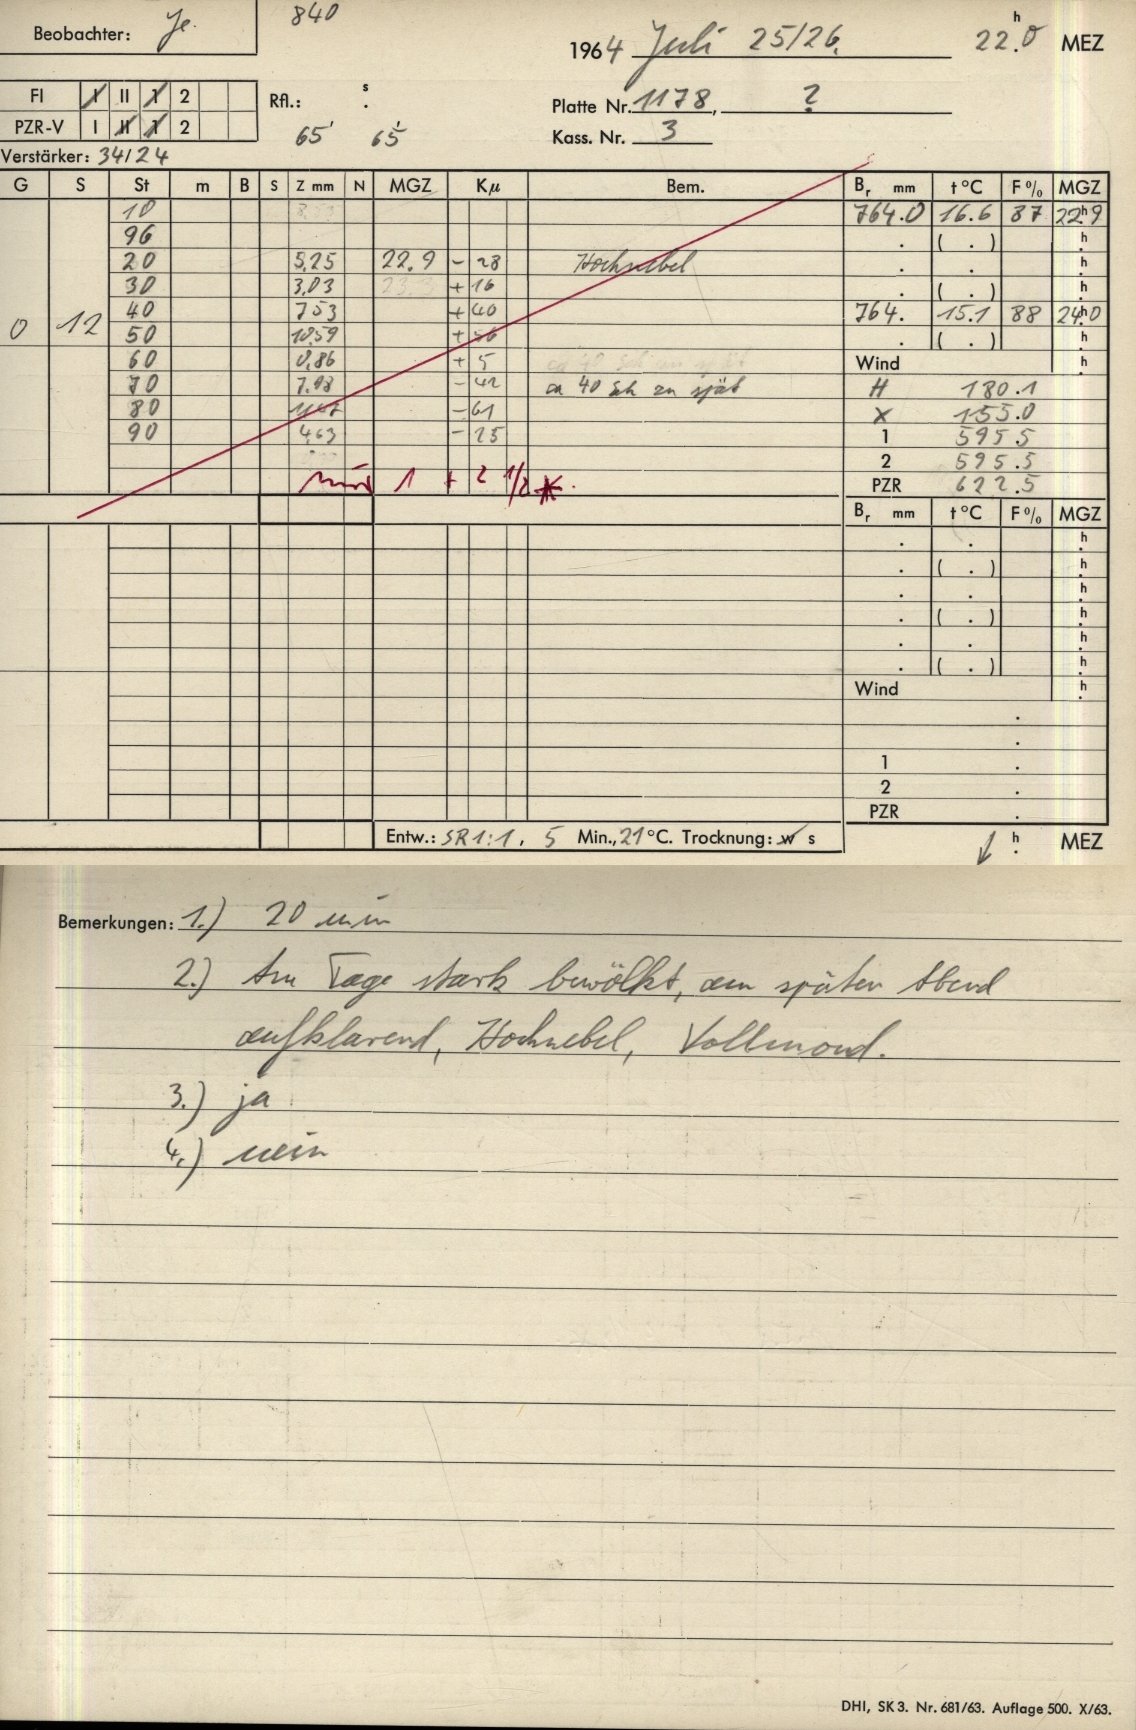 Beobachter: Je.
840
1964 Juli 25/26. 22.h0 MEZ
FI I II 1 2
PZR-V I II 1 2
Rfl.: s .
65' 65'
Platte Nr. 1178, ?
Kass. Nr. 3
Verstärker: 34/24
G S St m B S Z mm N MGZ Kμ Bem. Br mm t °C F % MGZ
10 764.0 16.6 87 22h9
96 . ( . ) h.
20 5,25 22.9 - 28 Hochnebel . . h.
30 3,03 + 16 . ( . ) h.
0 12 40 753 + 40 764. 15.1 88 24h0
50 10,59 + 56 . ( . ) h.
60 0,86 + 5 Wind h.
70 7,98 - 42 ca 40 Sek zu spät H 180.1
80 - 61 X 155.0
90 4,63 - 25 1 595 5
2 595.5
nur 1 + 2 1/2 *. PZR 622.5
Br mm t °C F % MGZ
. . h.
. ( . ) h.
. . h.
. ( . ) h.
. . h.
. ( . ) h.
Wind h.
.
.
1 .
2 .
PZR .
Entw.: SR 1:1, 5 Min., 21 °C. Trocknung: w s h. MEZ
Bemerkungen: 1.) 20 min
2.) Am Tage stark bewölkt, am späten Abend
aufklarend, Hochnebel, Vollmond.
3.) ja
4.) nein
DHI, SK 3. Nr. 681/63. Auflage 500. X/63.